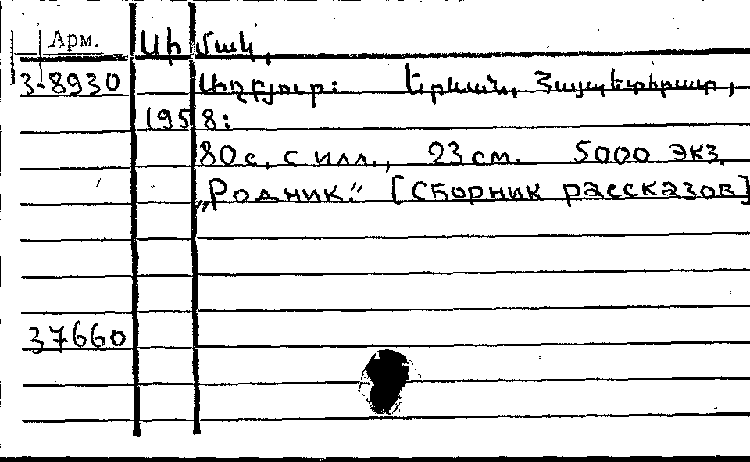 Арм. Սիմակ,
3-8930 Աղբյուր: Երևան, Հայպետհրատ,
1958:
80 с. с илл., 23 см. 5000 экз.
„Родник.“ [Сборник рассказов]
37660